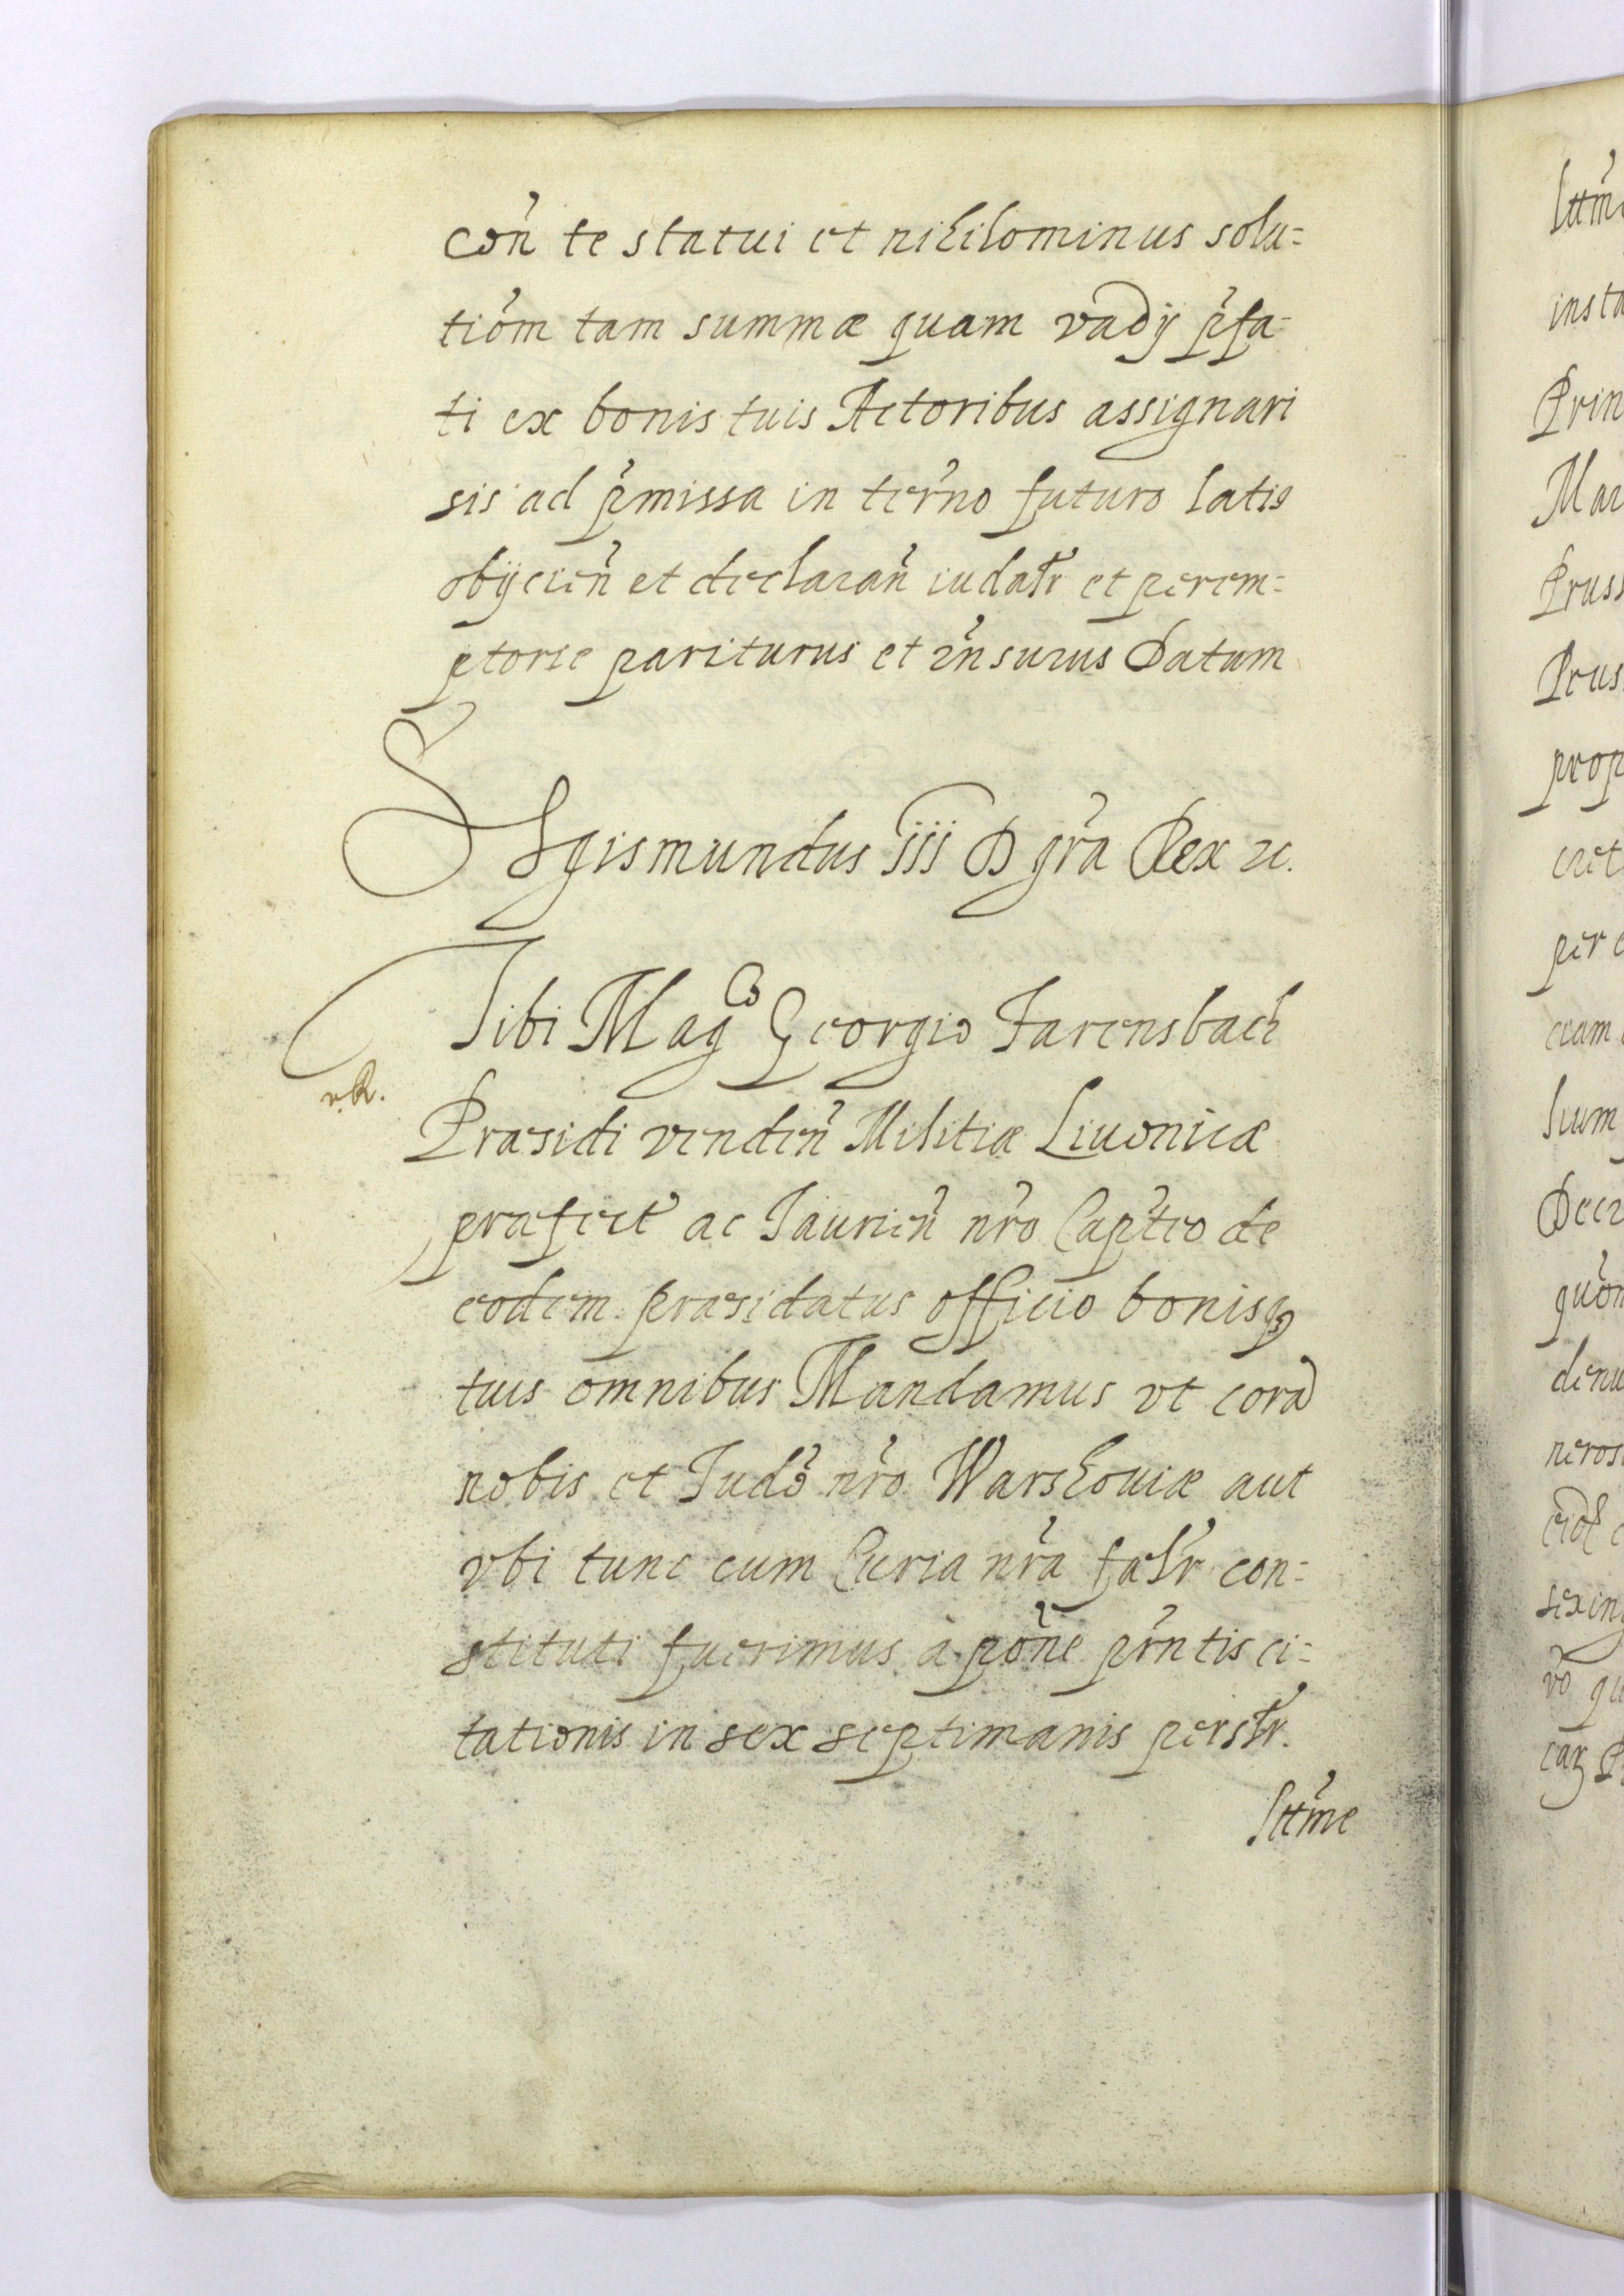 coñ te statui et nihilominus solu=
tiōm tam summæ quam vadÿ p̄fa=
ti ex bonis tuis Actoribus assignari
sis ad p̄missa in terno futuro latis
obÿcien̄ et declaran̄ iudalr et perem=
ptorie pariturus et rn̄surus Datum
Sigismundus iii D gra Rex &c.
Tibi Mag^co Georgio Farensbach
v.R.
Præsidi venden̄ Militiæ Livonicæ
præfect ac Taurien̄ nr̄o Cap̄teo de
eodem præsidatus officio bonisq
tuis omnibus Mandamus vt corã
nobis et Judō nr̄o Warshoviæ aut
vbi tunc cum Curia nr̄a falr con=
stituti fuerimus à pōne pr̄ntis ci=
tationis in sex septimanis perslr.
lttm̄e
lttm̄
insta
Prin
Mar
Prus
Prus
prop
cret
per
Decr